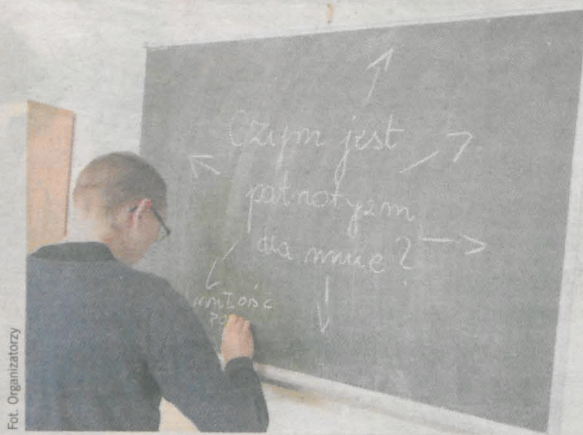 Czym jest
patriotyzm
dla mnie?
miłość
po
Fot. Organizatorzy